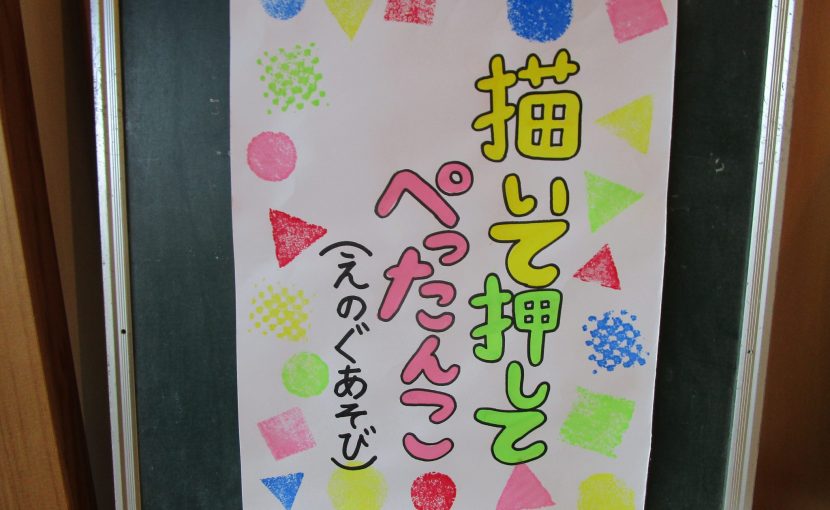 描いて押して
ぺったんこ
(えのぐあそび)